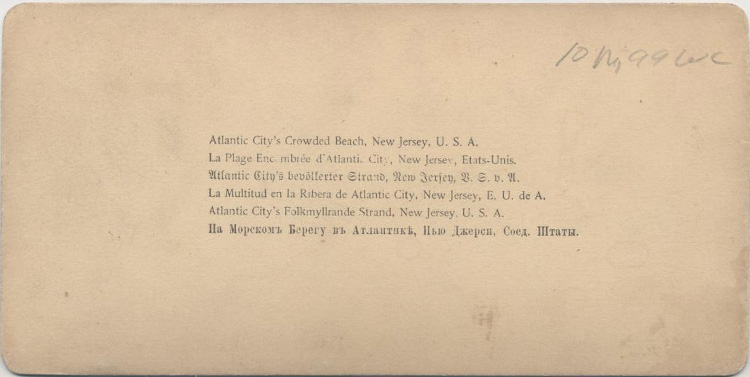 Atlantic City's Crowded Beach, New Jersey, U. S. A.
La Plage Encombrée d'Atlantic City, New Jersey, Etats-Unis.
Atlantic City's bevölkerter Strand, New Jersey, V. S. v. A.
La Multitud en la Ribera de Atlantic City, New Jersey, E. U. de A.
Atlantic City's Folkmyllrande Strand, New Jersey, U. S. A.
На Морскомъ Берегу въ Атлантикѣ, Нью Джерси, Соед. Штаты.